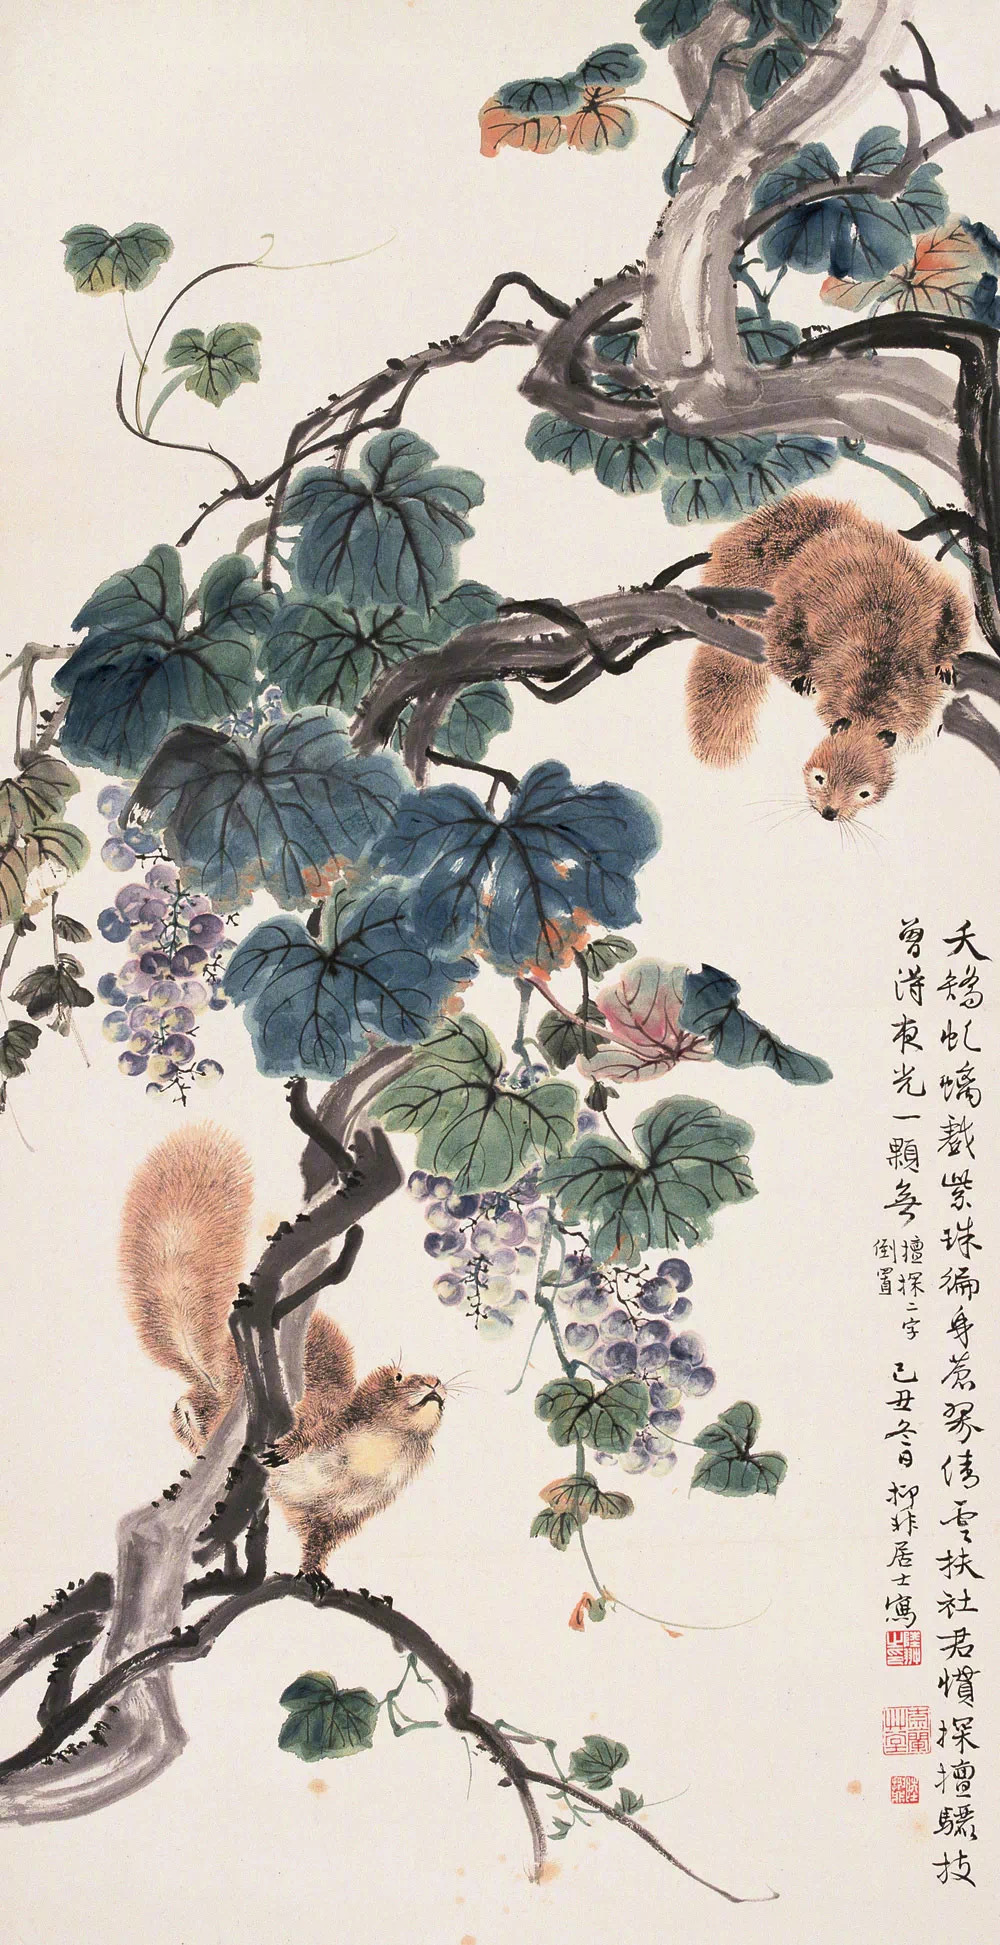 夭矯虬螭戲紫珠徧身蒼翠倩雲扶社君慣探擅驪技
曾得夜光一顆無
擅探二字
倒置
己丑冬日抑非居士寫
崇蘭艸堂